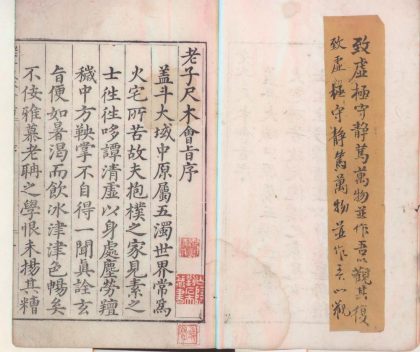 致虛極守靜篤萬物並作吾以觀其復
致虛極守靜篤萬物並作吾以觀
老子尺木會旨序
蓋斗大域中原屬五濁世界常爲
火宅所苦故夫抱樸之家見素之
士徃徃哆譚清虛以身處塵勞羶
穢中方鞅掌不自得一聞真詮玄
旨便如暑渴而飲冰津津色暢矣
不佞雅慕老聃之學恨未揚其糟